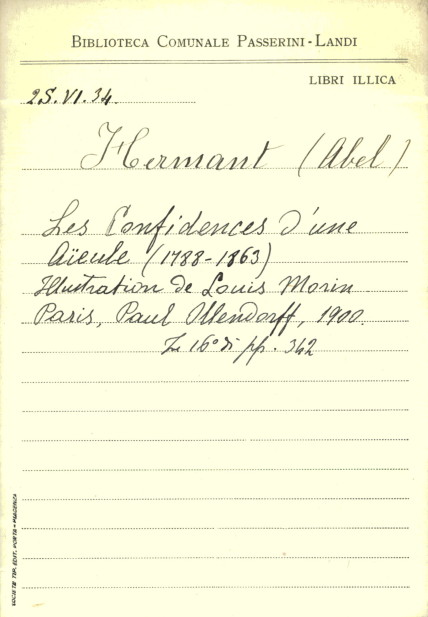 BIBLIOTECA COMUNALE PASSERINI-LANDI
LIBRI ILLICA
25.VI.34.
Hermant (Abel)
Les Confidences d'une
Aïeule (1788-1863)
Illustration de Louis Morin
Paris, Paul Ollendorff, 1900.
16° di pp. 342